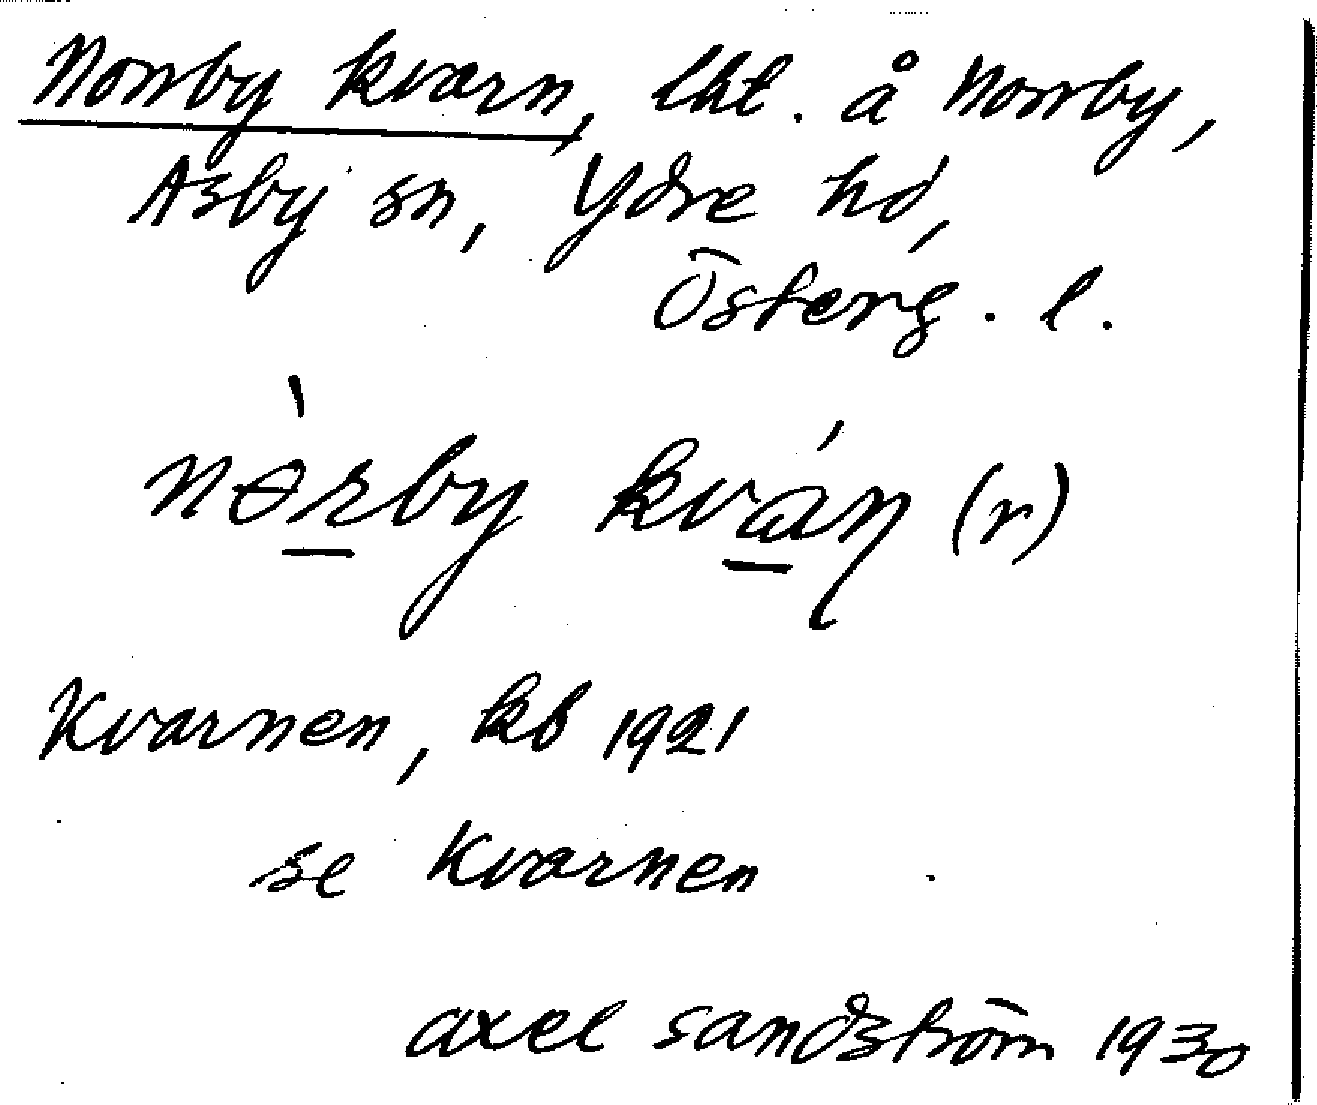 Norrby kvarn, lht. å Norrby,
Asby sn, Ydre hd,
Österg. l.
nɵ̀rby kván (r)
Kvarnen, kb 1921
se Kvarnen
axel sandström 1930